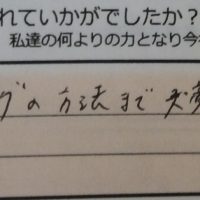 れていかがでしたか?
私達の何よりの力となり今
グの方法まで